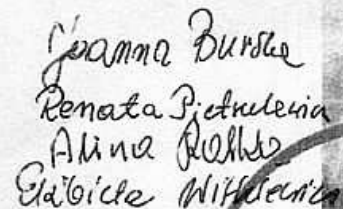 Joanna Burska
Renata Pietrulewicz
Alina
Elżbieta Witkiewicz